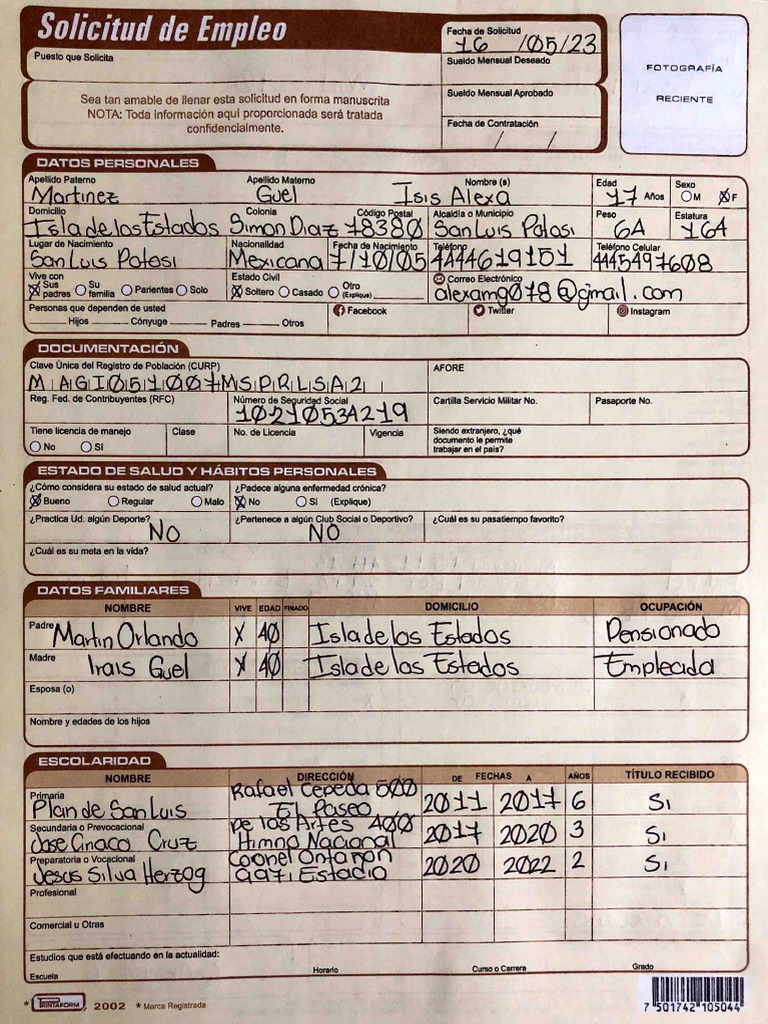 Solicitud de Empleo
Fecha de Solicitud
16 /05/23
Puesto que Solicita
Sueldo Mensual Deseado
FOTOGRAFÍA
RECIENTE
Sea tan amable de llenar esta solicitud en forma manuscrita
NOTA: Toda información aquí proporcionada será tratada
confidencialmente.
Sueldo Mensual Aprobado
Fecha de Contratación
/ /
DATOS PERSONALES
Apellido Paterno Apellido Materno Nombre (s) Edad Sexo
Martinez Guel Isis Alexa 17 Años M F
Domicilio Colonia Código Postal Alcaldía o Municipio Peso Estatura
Isla de los Estados Simon Diaz 78380 San Luis Potosi 64 164
Lugar de Nacimiento Nacionalidad Fecha de Nacimiento Teléfono Teléfono Celular
San Luis Potosi Mexicana 7/10/05 4444619151 4445497608
Vive con Estado Civil Correo Electrónico
Sus padres Su familia Parientes Solo Soltero Casado Otro (Explique) alexamg078@gmail.com
Personas que dependen de usted Facebook Twitter Instagram
Hijos Cónyuge Padres Otros
DOCUMENTACIÓN
Clave Única del Registro de Población (CURP) AFORE
MAGI051007MSPRLSA2
Reg. Fed. de Contribuyentes (RFC) Número de Seguridad Social Cartilla Servicio Militar No. Pasaporte No.
10210534219
Tiene licencia de manejo Clase No. de Licencia Vigencia Siendo extranjero, ¿qué
documento le permite
No Sí trabajar en el país?
ESTADO DE SALUD Y HÁBITOS PERSONALES
¿Cómo considera su estado de salud actual? ¿Padece alguna enfermedad crónica?
Bueno Regular Malo No Sí (Explique)
¿Practica Ud. algún Deporte? ¿Pertenece a algún Club Social o Deportivo? ¿Cuál es su pasatiempo favorito?
NO NO
¿Cuál es su meta en la vida?
DATOS FAMILIARES
NOMBRE VIVE EDAD FINADO DOMICILIO OCUPACIÓN
Padre Martin Orlando X 40 Isla de los Estados Pensionado
Madre Irais Guel X 40 Isla de los Estados Empleada
Esposa (o)
Nombre y edades de los hijos
ESCOLARIDAD
NOMBRE DIRECCIÓN DE FECHAS A AÑOS TÍTULO RECIBIDO
Primaria Rafael Cepeda 500
Plan de San Luis El Paseo 2011 2017 6 Si
Secundaria o Prevocacional De los Artes 400
Jose Ciriaco Cruz Himno Nacional 2017 2020 3 Si
Preparatoria o Vocacional Coronel Ontañon
Jesus Silva Herzog 997, Estadio 2020 2022 2 Si
Profesional
Comercial u Otras
Estudios que está efectuando en la actualidad:
Escuela Horario Curso o Carrera Grado
* PRINTAFORM 2002 * Marca Registrada
7 501742 105044